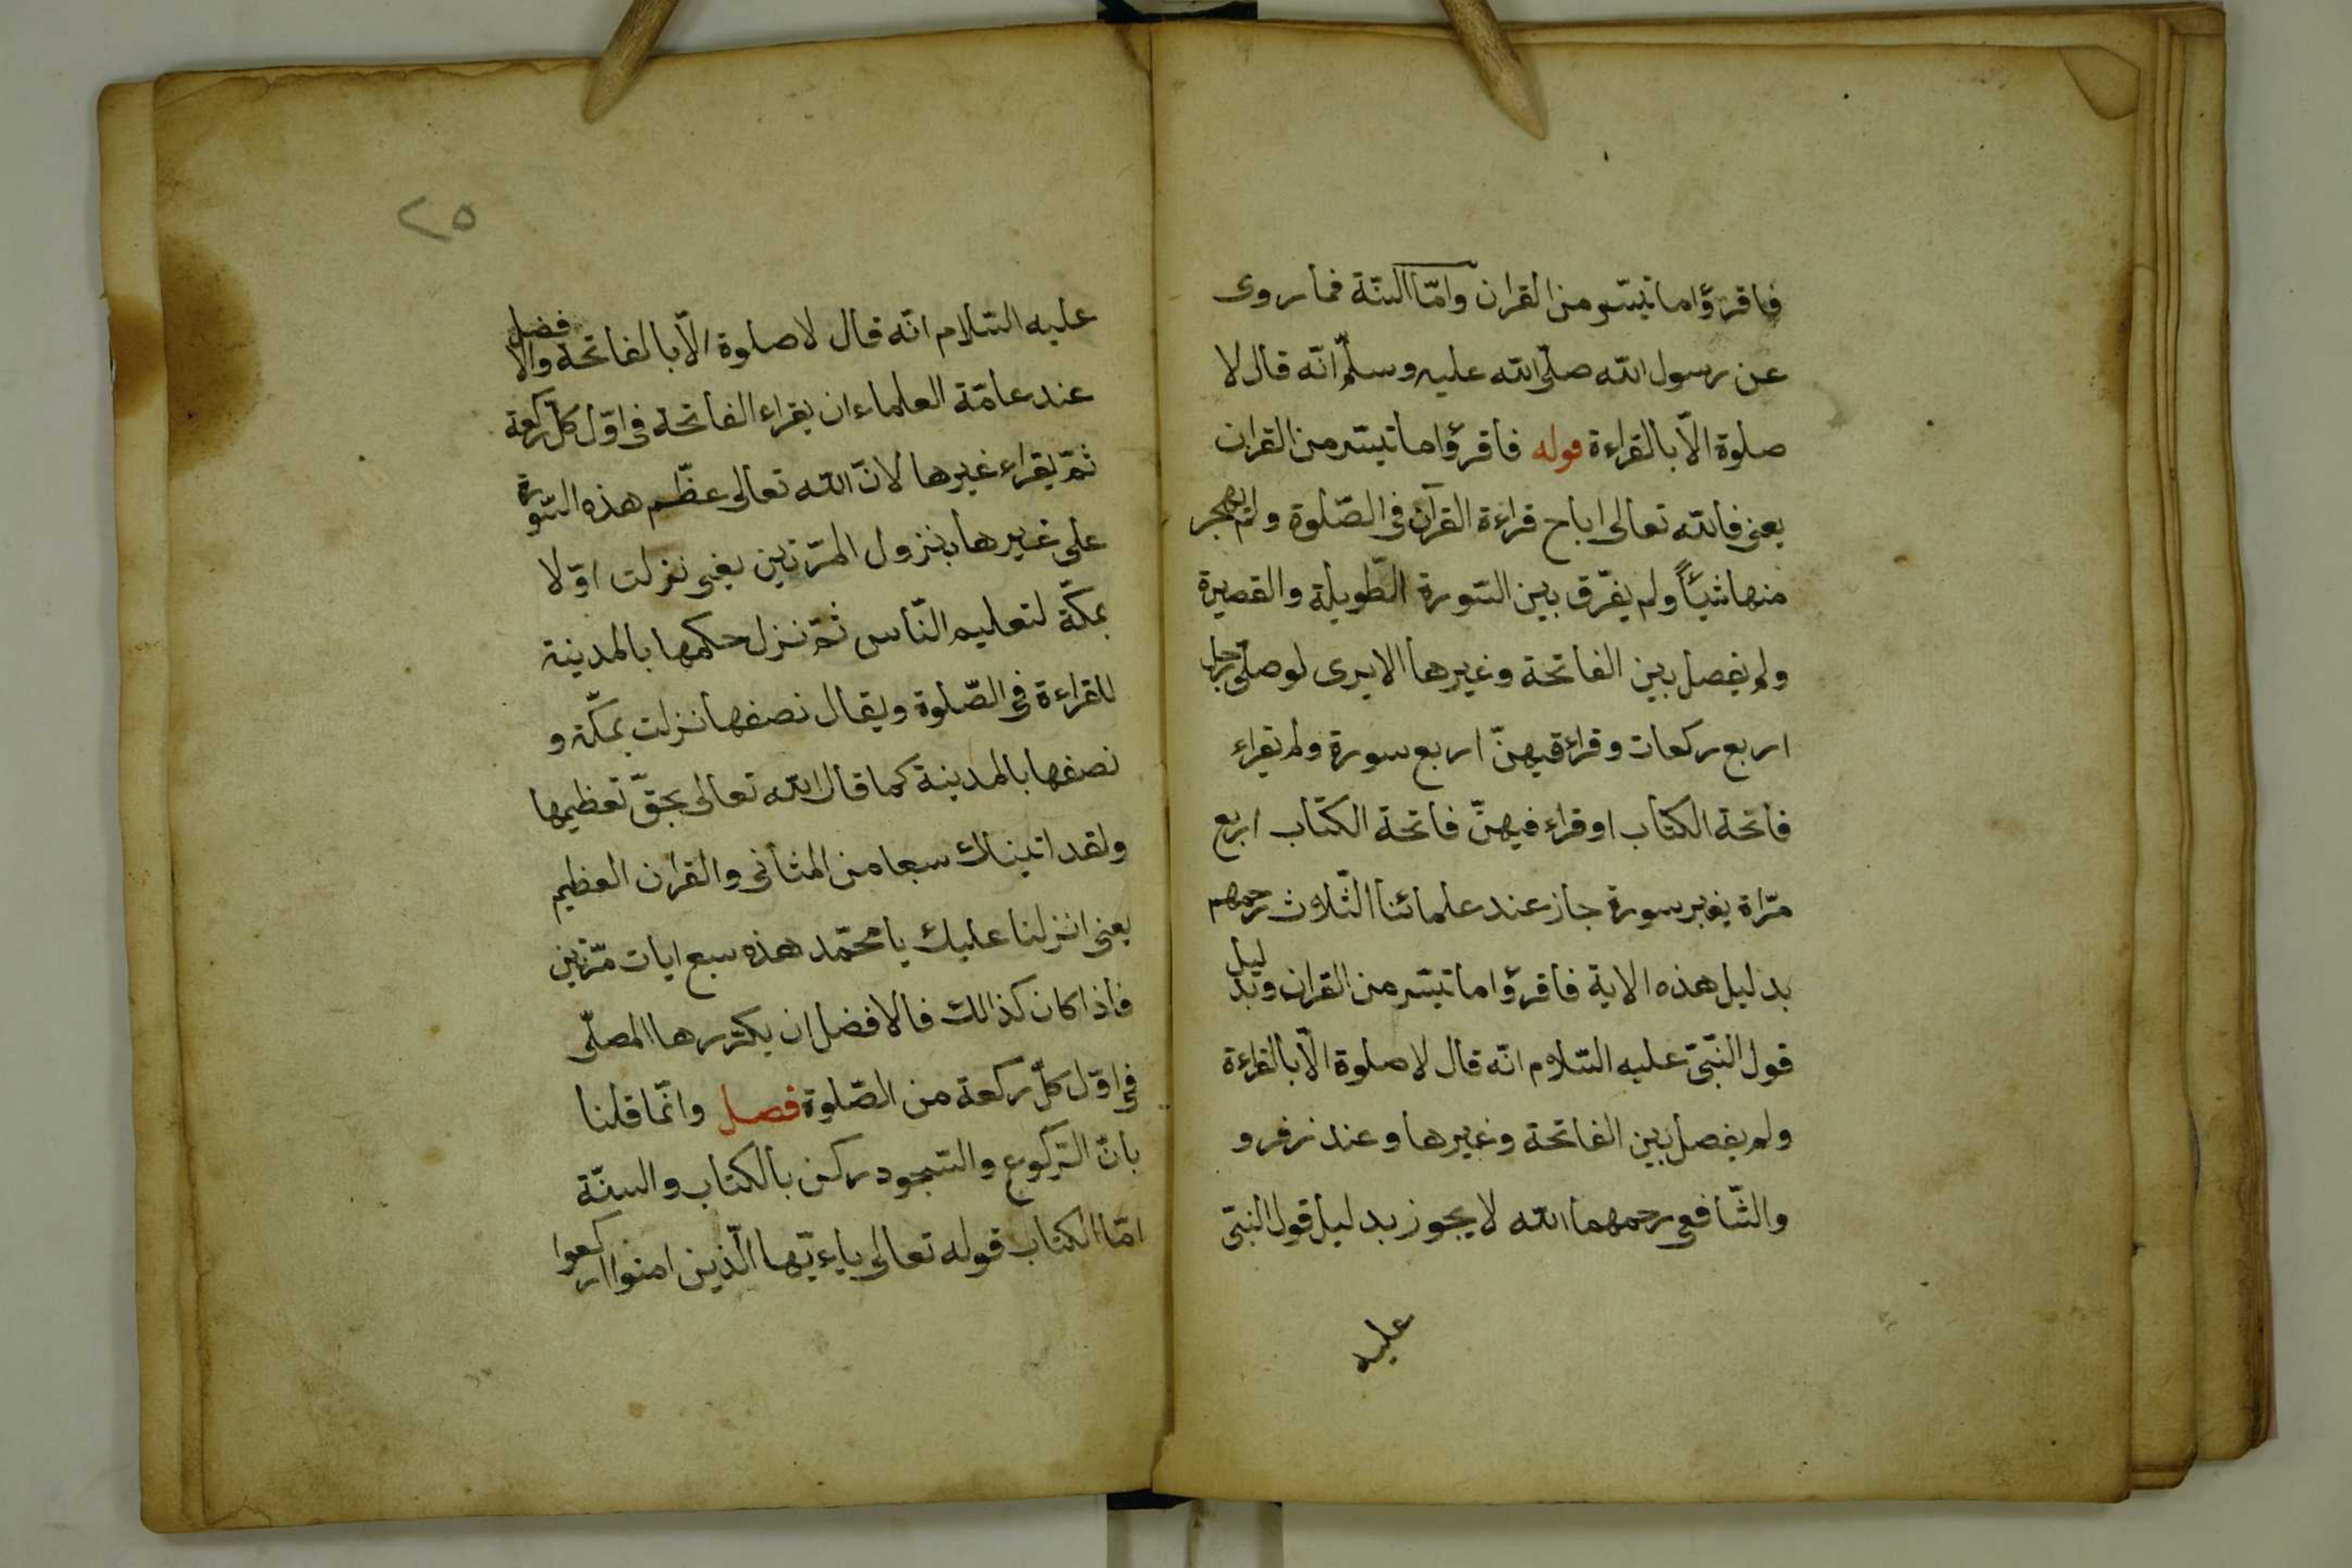 فاقرؤا ما تيسّر من القران وامّا السّنّة فما روى
عن رسول الله صلّى الله عليه وسلّم انّه قال لا
صلوة الّا بالقراءة قوله فاقرؤا ما تيسّر من القران
يعنى فالله تعالى اباح قراءة القرآن فى الصّلوة ولم يهجر
منها شيئاً ولم يفرّق بين السّورة الطّويلة والقصيرة
ولم يفصل بين الفاتحة وغيرها الا يرى لو صلّى رجل
اربع ركعات وقراء فيهنّ اربع سورة ولم يقراء
فاتحة الكتاب او قراء فيهنّ فاتحة الكتاب اربع
مرّاة بغير سورة جاز عند علمائنا الثّلاث رحمهم
بدليل هذه الاية فاقرؤا ما تيسّر من القران وبدليل
قول النّبىّ عليه السّلام انّه قال لا صلوة الّا بالقراءة
ولم يفصل بين الفاتحة وغيرها وعند زفر و
والشّافعى رحمهما الله لا يجوز بدليل قول النبىّ
عليه
٢٥
عليه السّلام انّه قال لا صلوة الّا بالفاتحة والافضل
عند عامّة العلماء ان يقراء الفاتحة فى اوّل كلّ ركعة
ثمّ يقراء غيرها لانّ الله تعالى عظّم هذه السّورة
على غيرها بنزول المرّتين يعنى نزلت اوّلا
بمكّة لتعليم النّاس ثمّ نزل حكمها بالمدينة
للقراءة فى الصّلوة ويقال نصفها نزلت بمكّة و
نصفها بالمدينة كما قال الله تعالى بحقّ تعظيمها
ولقد اتيناك سبعا من المثانى والقران العظيم
يعنى انزلنا عليك يا محمّد هذه سبع ايات مرّتين
فاذا كان كذالك فالافضل ان يكرّرها المصلّى
فى اوّل كلّ ركعة من الصّلوة فصل وانّما قلنا
بانّ الرّكوع والسّجود ركن بالكتاب والسنّة
امّا الكتاب قوله تعالى ياءيّها الّذين امنوا اركعوا